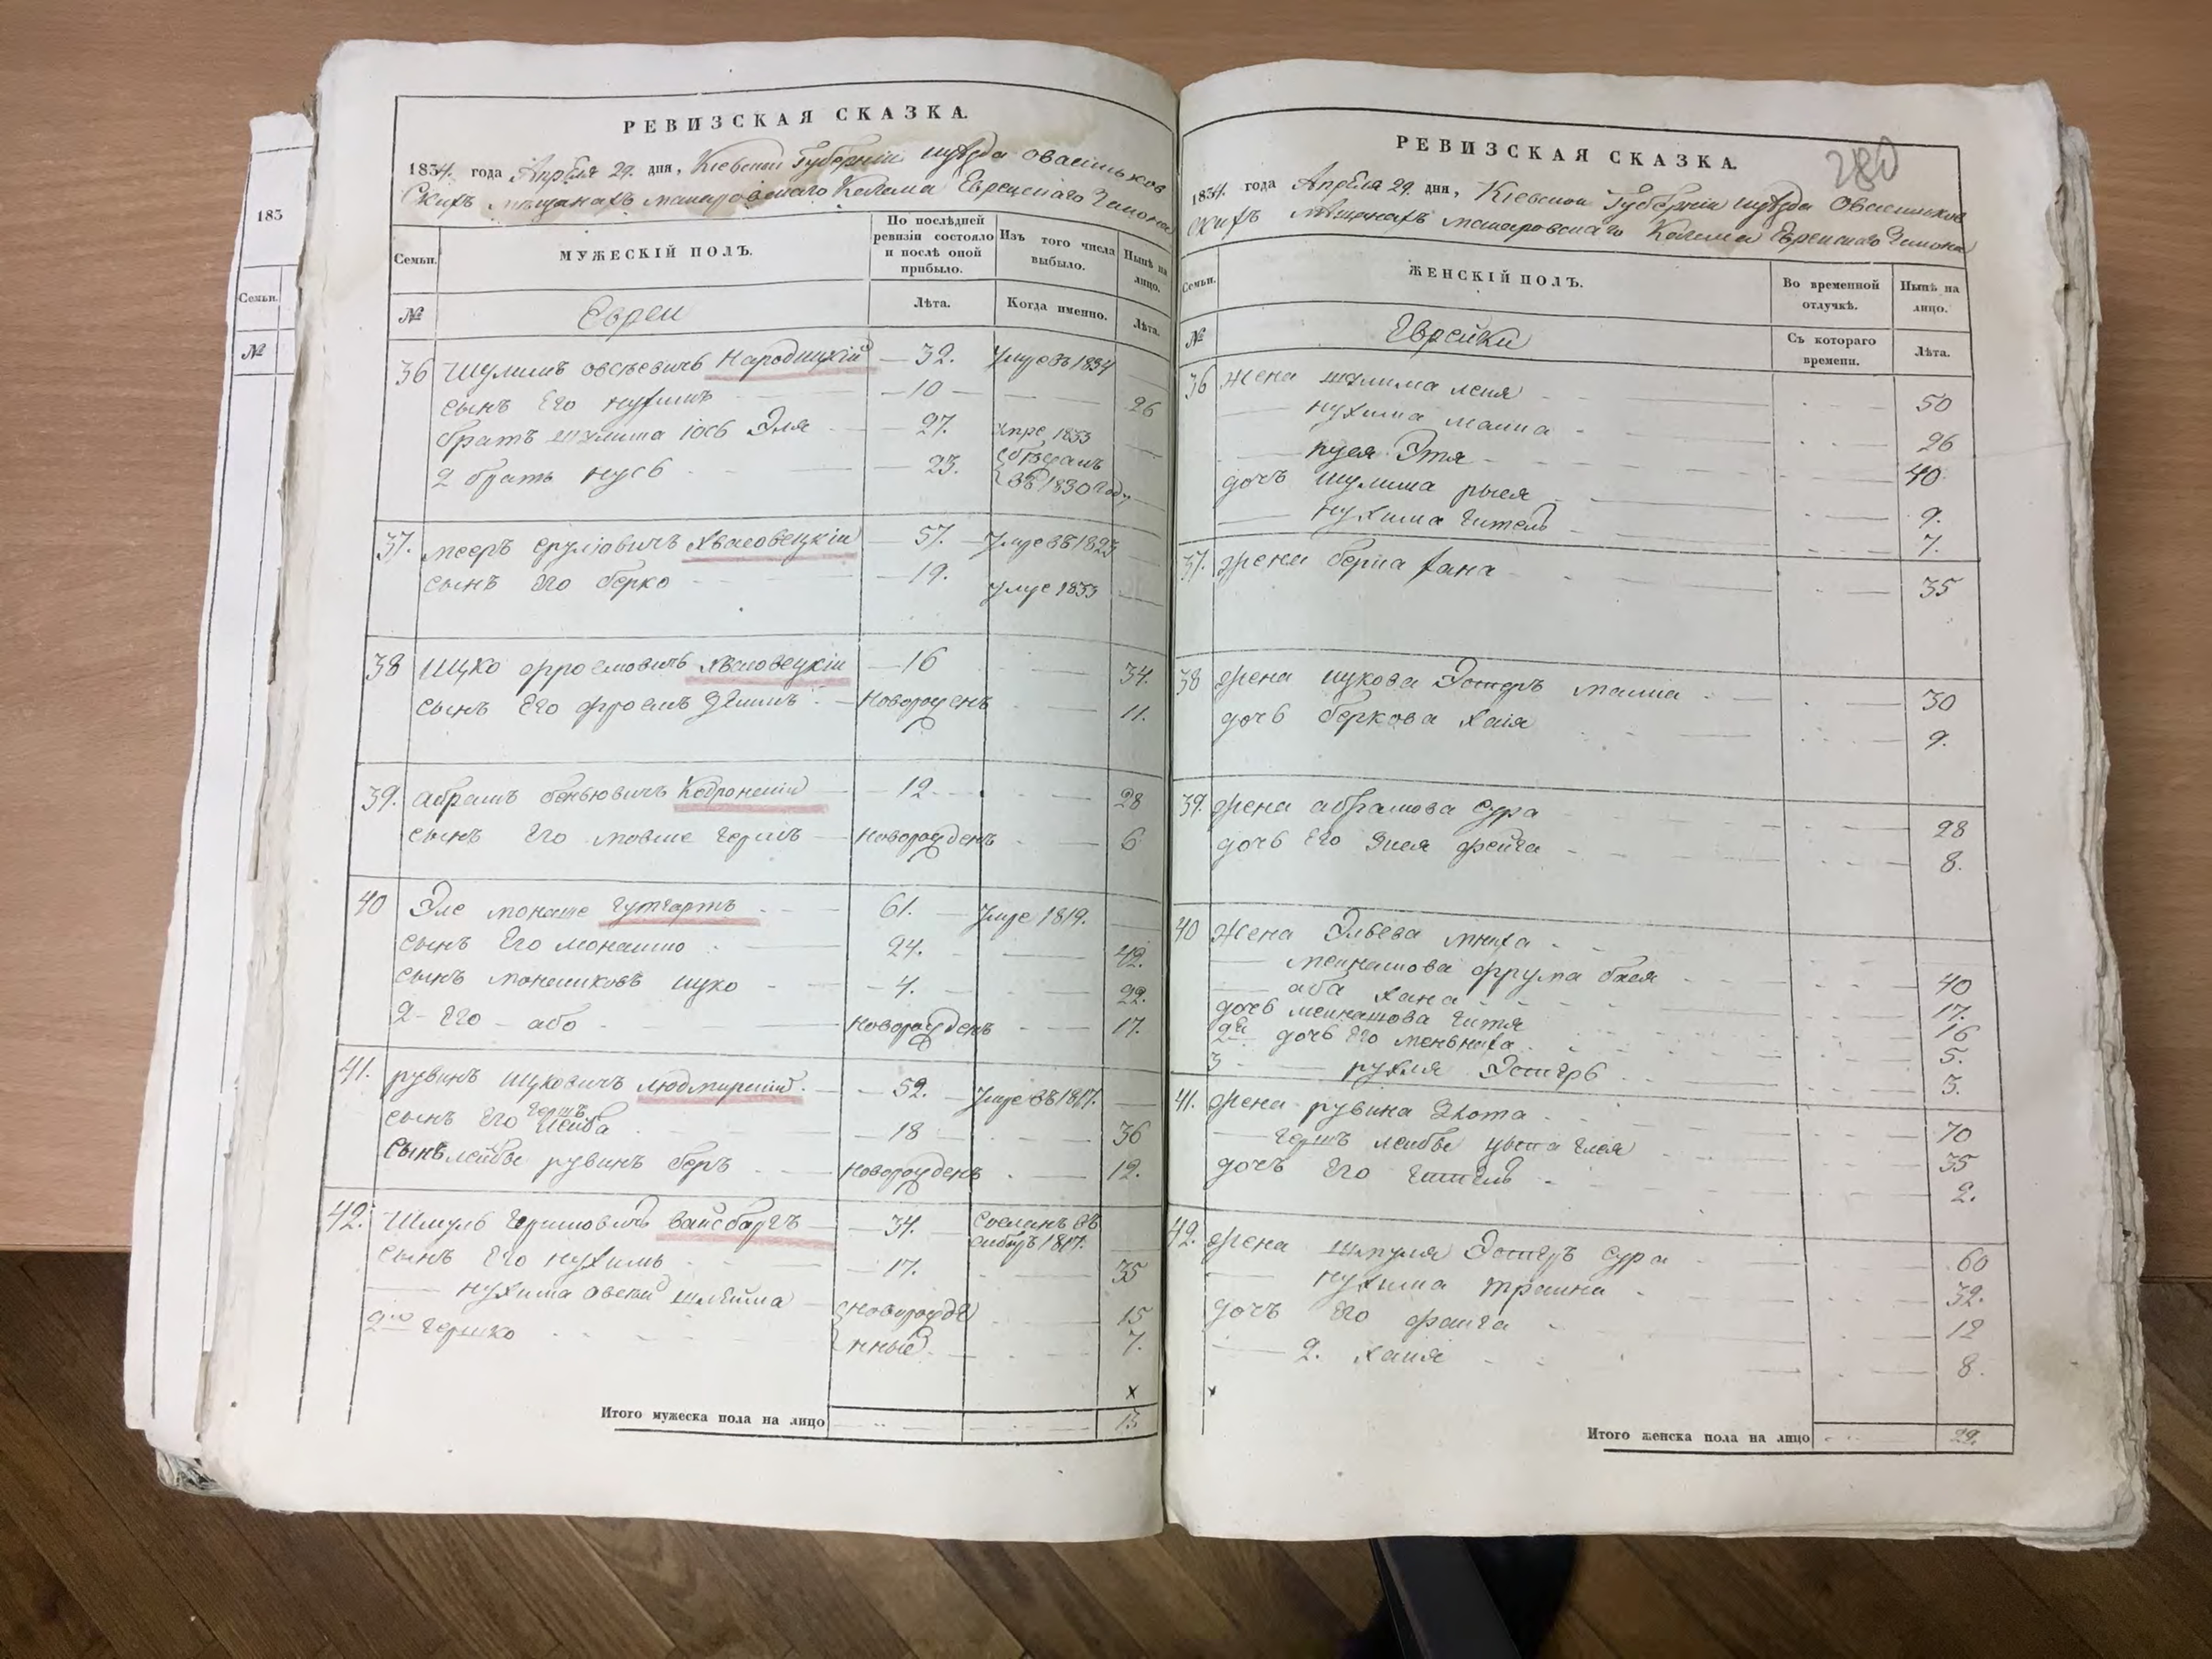 183
Семьи.
№
РЕВИЗСКАЯ СКАЗКА.
1834. года Апрѣля 29. дня, Кіевской Губерніи уѣзда Овасильков
Скихъ мѣщанахъ макаровскаго Кагала Еврейскаго Закона
Семьи.
МУЖЕСКІЙ ПОЛЪ.
По послѣдней ревизіи состояло и послѣ оной прибыло.
Изъ того числа выбыло.
Нынѣ на лицо.
№
Евреи
Лѣта.
Когда именно.
Лѣта.
36 Шулимъ овсѣевичъ Народицкій 32. Умре въ 1834
сынъ Его нухимъ 10 26
братъ шулима іосъ Эля 27. умре 1833
2 братъ нусъ 23. сбѣжалъ въ 1830 году
37. мееръ сруліовичъ хваловецкій 57. Умре въ 1823
сынъ Его берко 19. умре 1833
38 ицко фроемовичъ хваловецкій 16 34.
сынъ Его фроемъ Новорожденъ 11.
39. абрамъ беньювичъ 12 28
сынъ Его мовше гершъ новорожденъ 6
40 Эле монаше гутгартъ 61. Умре 1819.
сынъ Его монашко 24. 42.
сынъ монашковъ ицко 4. 22.
2 Его або новорожденъ 17.
41. рувинъ ицковичъ людмирскій 52. Умре въ 1817.
сынъ Его гершъ лейба 18 36
сынъ лейбы рувинъ беръ новорожденъ 12.
42. Шмуль гершовичъ вайсбаргъ 34. Сосланъ въ сибиръ 1817.
сынъ Его нухимъ 17. 35
нухима овсей шлёйма новорожде 15
2й гершко нные 7.
x
Итого мужеска пола на лицо 13
280
РЕВИЗСКАЯ СКАЗКА.
1834. года Апрѣля 29. дня, Кіевской Губерніи уѣзда Овасильков
скихъ мѣщанахъ макаровскаго Кагала Еврейскаго Закона
Семьи.
ЖЕНСКІЙ ПОЛЪ.
Во временной отлучкѣ.
Нынѣ на лицо.
№
Еврейки
Съ котораго времени.
Лѣта.
36 жена шулима лея 50
нухима малка 26
нуся Этя 40
дочъ шулима рыся 9.
нухима гитель 7.
37. жена берка хана 35
38 жена ицкова Эстеръ малка 30
дочь беркова хаія 9.
39. жена абрамова сура 28
дочь Его фейга 8.
40 жена Эльева мниха 40
менашова фрума бася 17.
аба хана 16
дочь менашова гитя 5.
2я дочь Его 3.
3 рухля Эстеръ
41. жена рувина 70
гершъ лейбы цвета 35
дочъ Его гитель 2.
42. жена шмуля Эстеръ сура 60
нухима траина 32.
дочъ Его файга 12
2. хаия 8.
x
Итого женска пола на лицо 22.